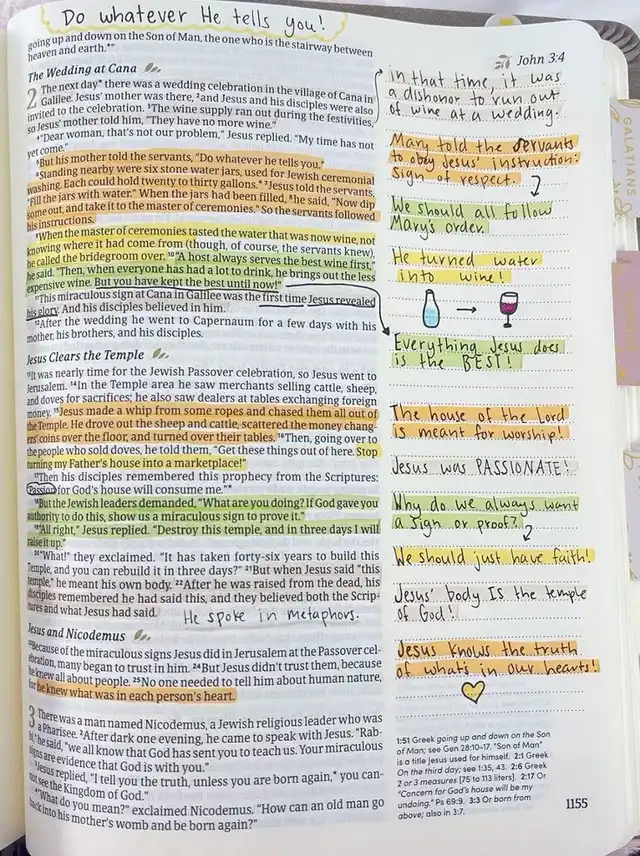 Do whatever He tells you!
going up and down on the Son of Man, the one who is the stairway between
heaven and earth.*"
The Wedding at Cana
2 The next day* there was a wedding celebration in the village of Cana in
Galilee. Jesus' mother was there, ²and Jesus and his disciples were also
invited to the celebration. ³The wine supply ran out during the festivities,
so Jesus' mother told him, "They have no more wine."
⁴"Dear woman, that's not our problem," Jesus replied. "My time has not
yet come."
⁵But his mother told the servants, "Do whatever he tells you."
⁶Standing nearby were six stone water jars, used for Jewish ceremonial
washing. Each could hold twenty to thirty gallons.* ⁷Jesus told the servants,
"Fill the jars with water." When the jars had been filled, ⁸he said, "Now dip
some out, and take it to the master of ceremonies." So the servants followed
his instructions.
⁹When the master of ceremonies tasted the water that was now wine, not
knowing where it had come from (though, of course, the servants knew),
he called the bridegroom over. ¹⁰"A host always serves the best wine first,"
he said. "Then, when everyone has had a lot to drink, he brings out the less
expensive wine. But you have kept the best until now!"
¹¹This miraculous sign at Cana in Galilee was the first time Jesus revealed
his glory. And his disciples believed in him.
¹²After the wedding he went to Capernaum for a few days with his
mother, his brothers, and his disciples.
Jesus Clears the Temple
¹³It was nearly time for the Jewish Passover celebration, so Jesus went to
Jerusalem. ¹⁴In the Temple area he saw merchants selling cattle, sheep,
and doves for sacrifices; he also saw dealers at tables exchanging foreign
money. ¹⁵Jesus made a whip from some ropes and chased them all out of
the Temple. He drove out the sheep and cattle, scattered the money chang-
ers' coins over the floor, and turned over their tables. ¹⁶Then, going over to
the people who sold doves, he told them, "Get these things out of here. Stop
turning my Father's house into a marketplace!"
¹⁷Then his disciples remembered this prophecy from the Scriptures:
"Passion for God's house will consume me."*
¹⁸But the Jewish leaders demanded, "What are you doing? If God gave you
authority to do this, show us a miraculous sign to prove it."
¹⁹"All right," Jesus replied. "Destroy this temple, and in three days I will
raise it up."
²⁰"What!" they exclaimed. "It has taken forty-six years to build this
Temple, and you can rebuild it in three days?" ²¹But when Jesus said "this
temple," he meant his own body. ²²After he was raised from the dead, his
disciples remembered he had said this, and they believed both the Scrip-
tures and what Jesus had said.
He spoke in metaphors.
Jesus and Nicodemus
²³Because of the miraculous signs Jesus did in Jerusalem at the Passover cel-
ebration, many began to trust in him. ²⁴But Jesus didn't trust them, because
he knew all about people. ²⁵No one needed to tell him about human nature,
for he knew what was in each person's heart.
3 There was a man named Nicodemus, a Jewish religious leader who was
a Pharisee. ²After dark one evening, he came to speak with Jesus. "Rab-
bi," he said, "we all know that God has sent you to teach us. Your miraculous
signs are evidence that God is with you."
³Jesus replied, "I tell you the truth, unless you are born again,* you can-
not see the Kingdom of God."
⁴"What do you mean?" exclaimed Nicodemus. "How can an old man go
back into his mother's womb and be born again?"
John 3:4
in that time, it was
a dishonor to run out
of wine at a wedding.
Mary told the servants
to obey Jesus' instruction.
Sign of respect.
We should all follow
Mary's order.
He turned water
into wine!
Everything Jesus does
is the BEST!
The house of the Lord
is meant for worship!
Jesus was PASSIONATE!
Why do we always want
a sign or proof?
We should just have faith!
Jesus' body IS the temple
of God!
Jesus knows the truth
of what's in our hearts!
1:51 Greek going up and down on the Son
of Man; see Gen 28:10-17. "Son of Man"
is a title Jesus used for himself. 2:1 Greek
On the third day; see 1:35, 43. 2:6 Greek
2 or 3 measures [75 to 113 liters]. 2:17 Or
"Concern for God's house will be my
undoing." Ps 69:9. 3:3 Or born from
above; also in 3:7.
1155
GALATIANS